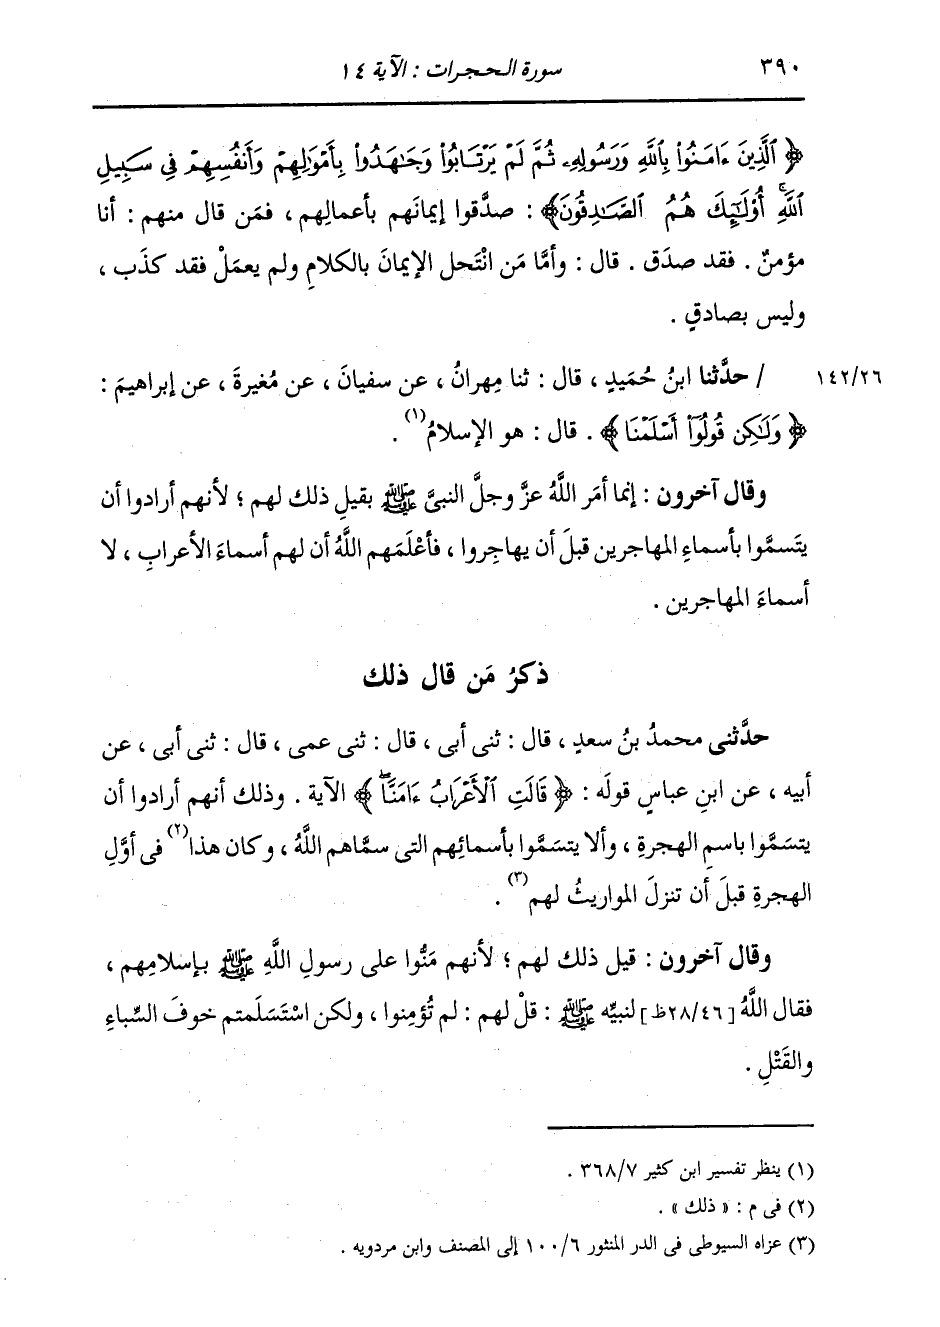 ٣٩٠ سورة الحجرات : الآية ١٤
﴿ ٱلَّذِينَ ءَامَنُوا۟ بِٱللَّهِ وَرَسُولِهِۦ ثُمَّ لَمْ يَرْتَابُوا۟ وَجَٰهَدُوا۟ بِأَمْوَٰلِهِمْ وَأَنفُسِهِمْ فِى سَبِيلِ
ٱللَّهِ ۚ أُو۟لَٰٓئِكَ هُمُ ٱلصَّٰدِقُونَ﴾ : صدَّقوا إيمانَهم بأعمالِهم ، فمَن قال منهم : أنا
مؤمنٌ . فقد صدَق . قال : وأمَّا مَن انْتَحل الإيمانَ بالكلامِ ولم يعمَلْ فقد كذَب ،
وليس بصادقٍ .
١٤٢/٢٦ / حدَّثنا ابنُ حُمَيدٍ ، قال : ثنا مِهرانُ ، عن سفيانَ ، عن مُغيرةَ ، عن إبراهيمَ :
﴿ وَلَٰكِن قُولُوٓا۟ أَسْلَمْنَا ﴾ . قال : هو الإسلامُ(١) .
وقال آخرون : إنما أمَر اللَّهُ عزَّ وجلَّ النبىَّ ﷺ بقيلِ ذلك لهم ؛ لأنهم أرادوا أن
يتَسمَّوا بأسماءِ المهاجرين قبلَ أن يهاجِروا ، فأعْلَمَهم اللَّهُ أن لهم أسماءَ الأعرابِ ، لا
أسماءَ المهاجرين .
ذكرُ مَن قال ذلك
حدَّثنى محمدُ بنُ سعدٍ ، قال : ثنى أبى ، قال : ثنى عمى ، قال : ثنى أبى ، عن
أبيه ، عن ابنِ عباسٍ قولَه : ﴿ قَالَتِ ٱلْأَعْرَابُ ءَامَنَّا ۖ ﴾ الآية . وذلك أنهم أرادوا أن
يتسَمَّوا باسمِ الهجرةِ ، وألا يتسَمَّوا بأسمائِهم التى سمَّاهم اللَّهُ ، وكان هذا(٢) فى أوَّلِ
الهجرةِ قبلَ أن تنزلَ المواريثُ لهم(٣) .
وقال آخرون : قيل ذلك لهم ؛ لأنهم مَنُّوا على رسولِ اللَّهِ ﷺ بإسلامِهم ،
فقال اللَّهُ [٢٨/٤٦ظ] لنبيِّه ﷺ : قلْ لهم : لم تُؤمِنوا ، ولكن اسْتَسلَمتم خوفَ السِّباءِ
والقَتْلِ .
(١) ينظر تفسير ابن كثير ٣٦٨/٧ .
(٢) فى م : « ذلك » .
(٣) عزاه السيوطى فى الدر المنثور ١٠٠/٦ إلى المصنف وابن مردويه .